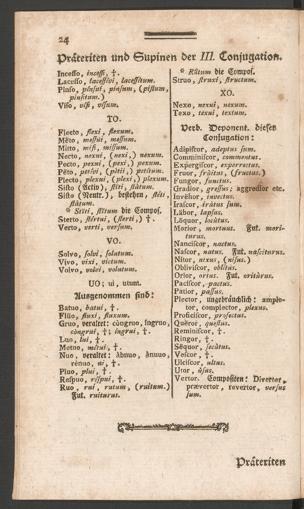 24
Präteriten und Supinen der III. Conjugation.
Incesso, incessi, †.
Lacesso, lacessivi, lacessitum.
Pinso, pinsui, pinsum, (pistum,
pinsitum.)
Viso, visi, visum.
TO.
Flecto, flexi, flexum.
Mĕto, messui, messum.
Mitto, misi, missum.
Necto, nexui, (nexi,) nexum.
Pecto, pexui, (pexi,) pexum.
Pĕto, petivi, (petii,) petitum.
Plecto, plexui, (plexi,) plexum.
Sisto (Activ), stiti, stătum.
Sisto (Neutr.), bestehen, stĕti,
stătum.
* Stiti, stitum die Compos.
Sterto, stĕrtui, (sterti,) †.
Verto, verti, versum.
VO.
Solvo, solvi, solutum.
Vivo, vixi, victum.
Volvo, volvi, volutum.
UO; ui, utum.
Ausgenommen sind:
Batuo, batui, †.
Fluo, fluxi, fluxum.
Gruo, veraltet: congruo, ingruo,
congrui, †; ingrui, †.
Luo, lui, †.
Metuo, metui, †.
Nuo, veraltet: abnuo, annuo,
renuo, ni, †.
Pluo, plui, †.
Respuo, respui, †.
Ruo, rui, rutum, (ruitum.)
Fut. ruiturus.
* Rŭtum die Compos.
Struo, struxi, structum.
XO.
Nexo, nexui, nexum.
Texo, texui, textum.
Verb. Deponent. dieser
Conjugation:
Adipiscor, adeptus sum.
Comminiscor, commentus.
Expergiscor, experrectus.
Fruor, frŭitus, (fructus.)
Fungor, functus.
Gradior, gressus; aggredior etc.
Invĕhor, invectus.
Irascor, irātus sum.
Lābor, lapsus.
Lŏquor, locūtus.
Morior, mortuus. Fut. mori-
turus.
Nanciscor, nactus.
Nascor, natus. Fut. nasciturus.
Nitor, nixus, (nisus.)
Obliviscor, oblitus.
Orior, ortus. Fut. oritūrus.
Paciscor, pactus.
Patior, passus.
Plector, ungebräuchlich: ample-
tor, complector, plexus.
Proficiscor, profectus.
Quĕror, questus.
Reminiscor, †.
Ringor, †.
Sĕquor, secūtus.
Vescor, †.
Ulciscor, ultus.
Utor, ūsus.
Vertor. Compositen: Divertor,
prævertor, revertor, versus
sum.
Präteriten